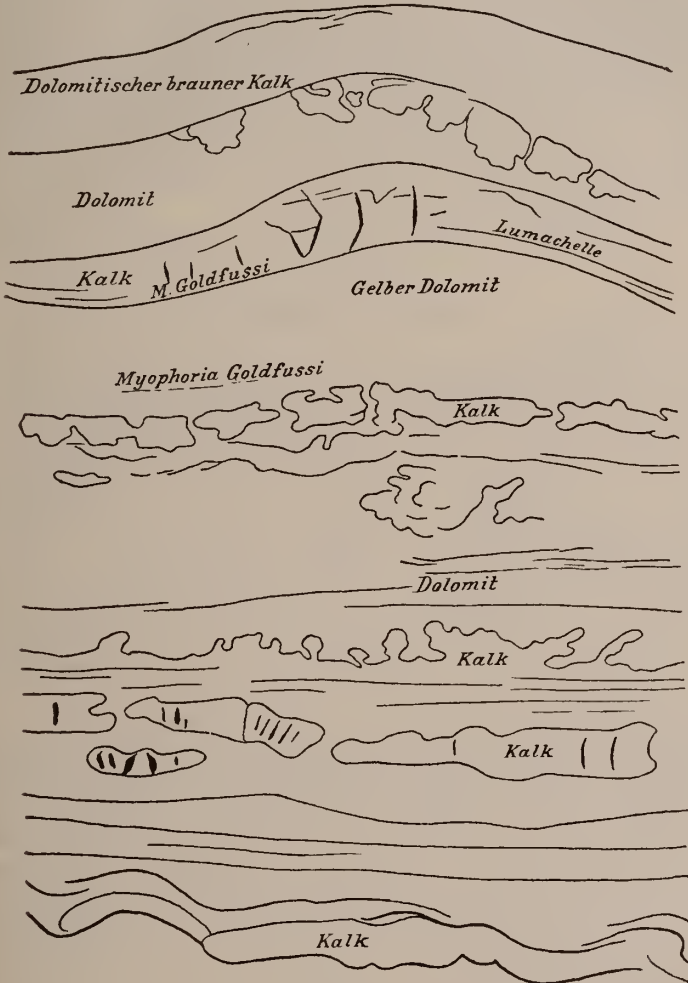 Dolomitischer brauner Kalk
Dolomit
Lumachelle
Kalk
M. Goldfussi
Gelber Dolomit
Myophoria Goldfussi
Kalk
Dolomit
Kalk
Kalk
Kalk